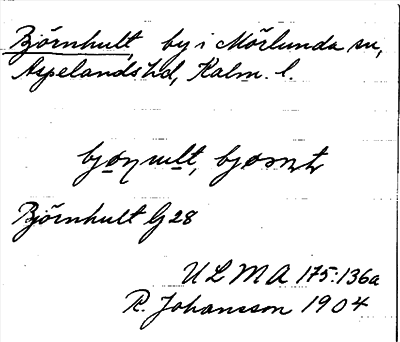 Björnhult, by i Mörlunda sn,
Aspelands hd, Kalm. l.
Björnhult G 28
ULMA 175:136a
R. Johansson 1904